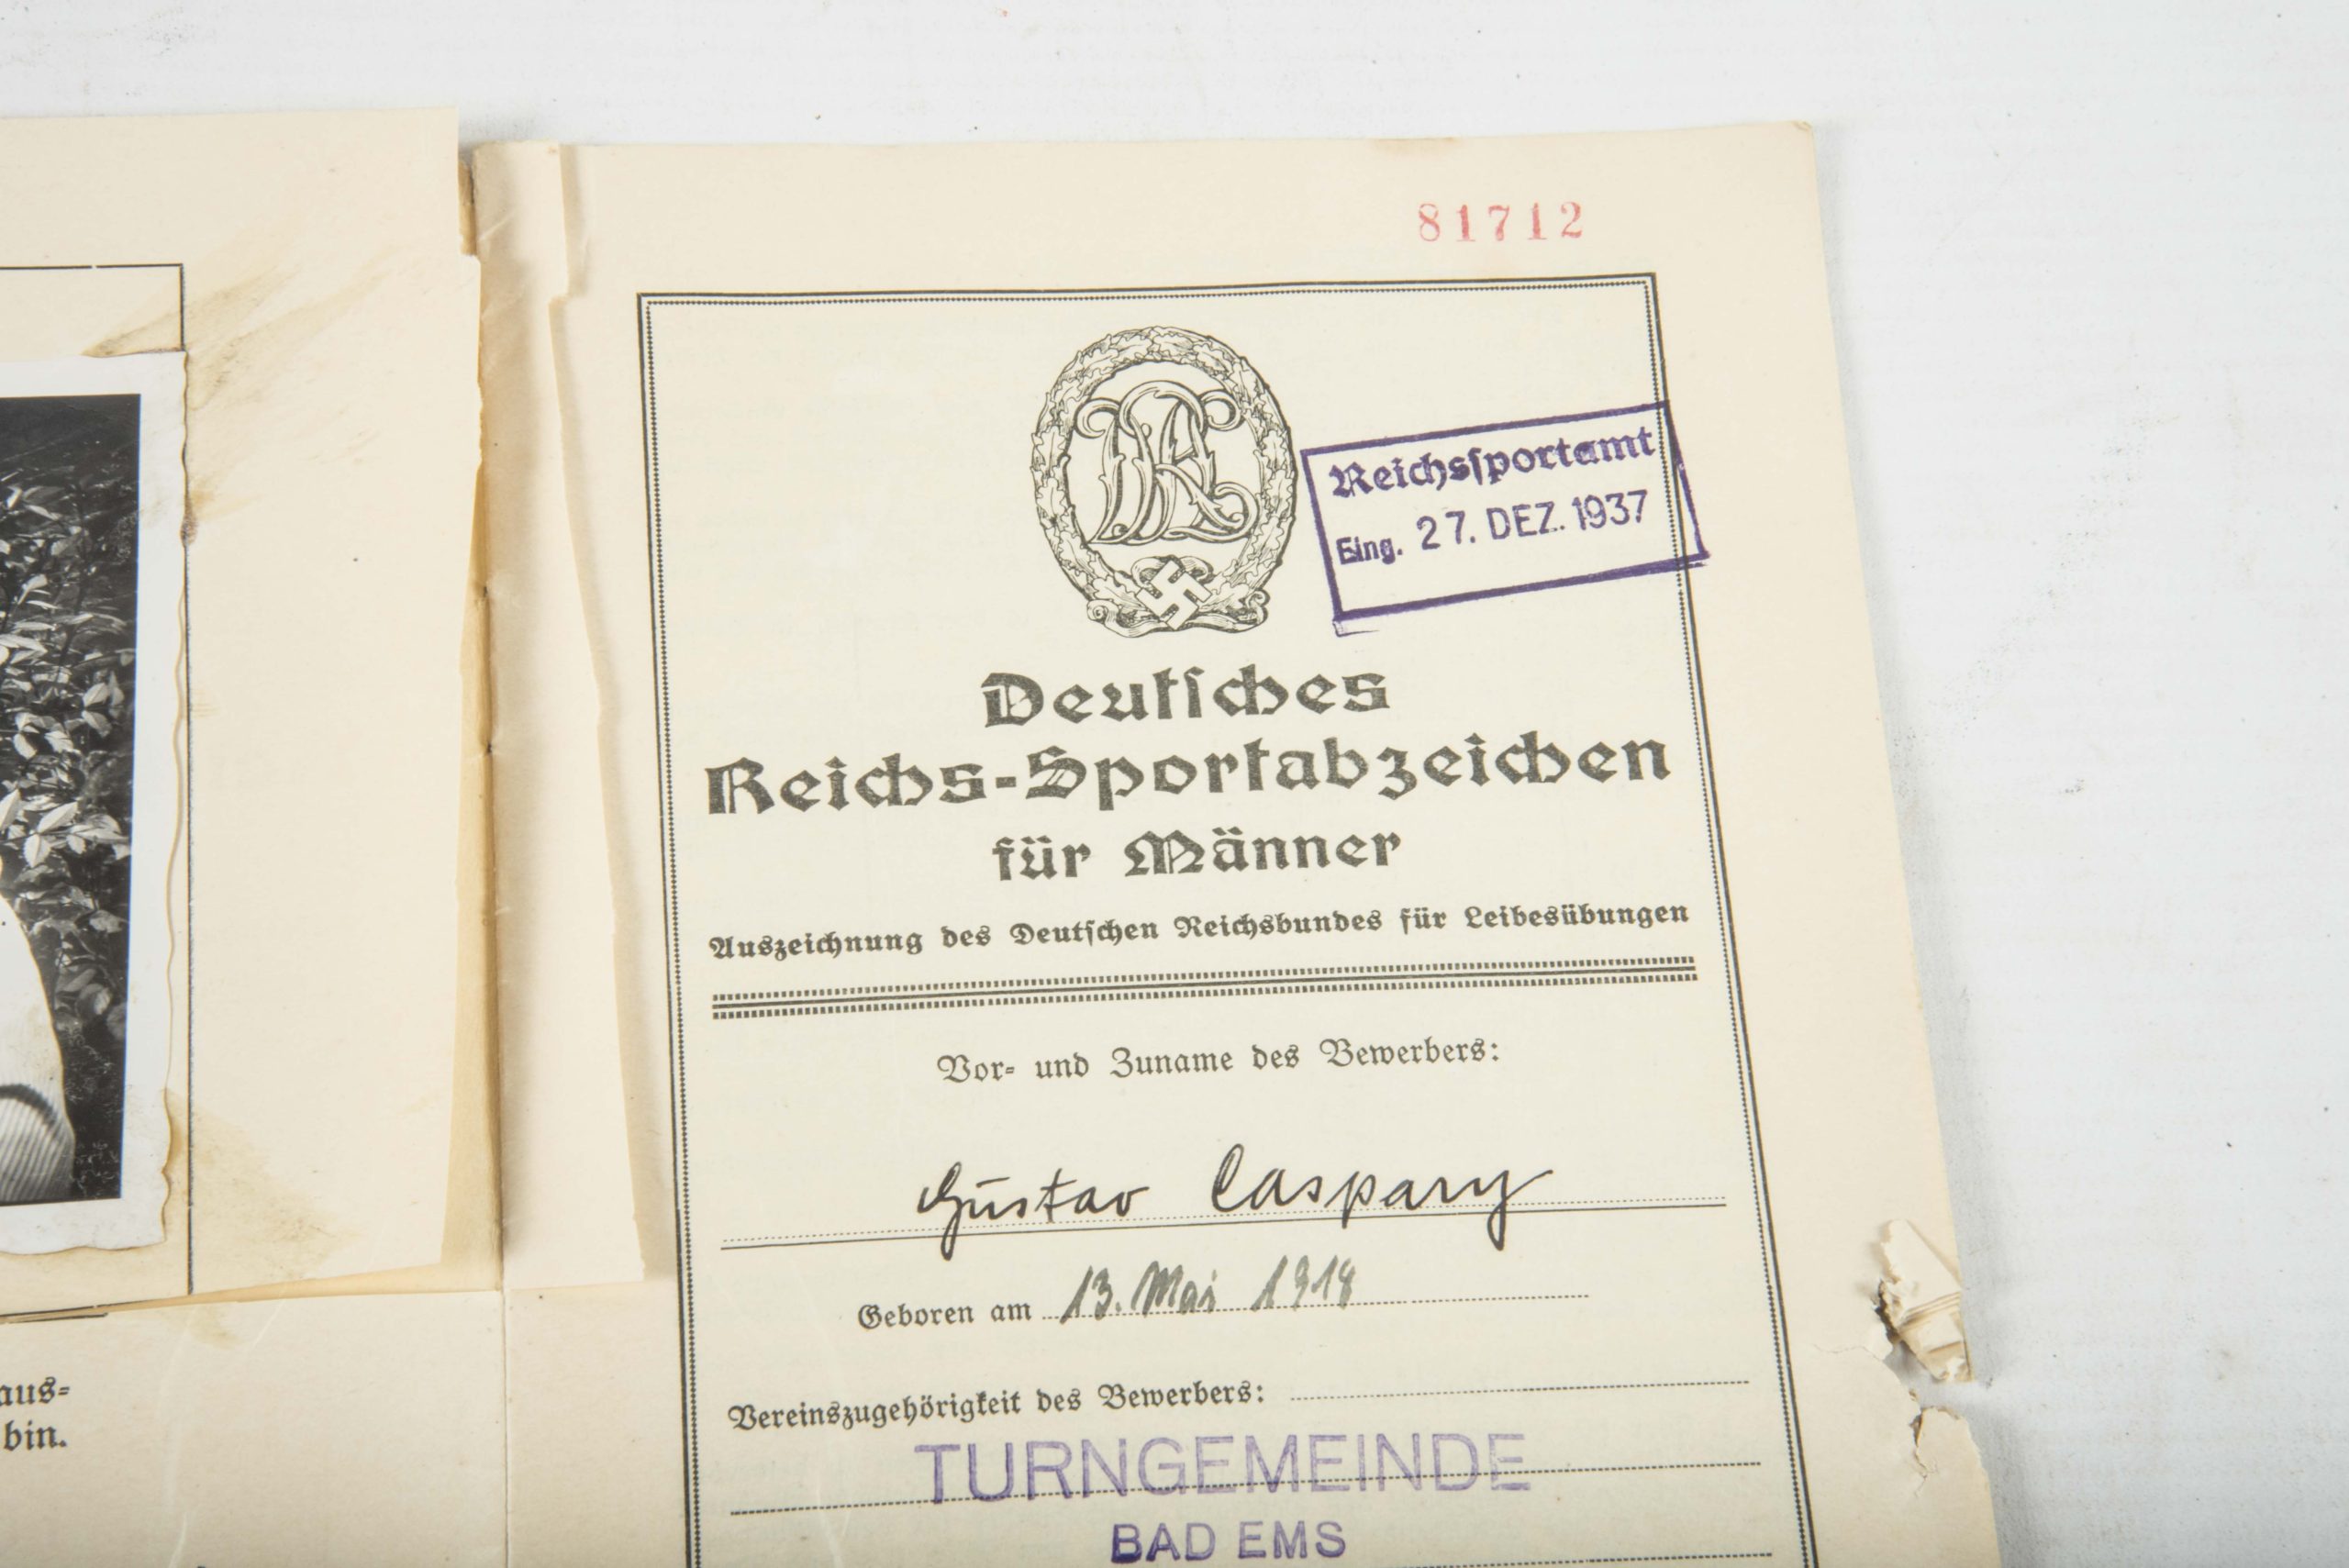 81712
DRL
Reichssportamt
Eing. 27. DEZ. 1937
Deutsches
Reichs-Sportabzeichen
für Männer
Auszeichnung des Deutschen Reichsbundes für Leibesübungen
Vor- und Zuname des Bewerbers:
Gustav Caspary
Geboren am 13. Mai 1918
Vereinszugehörigkeit des Bewerbers:
TURNGEMEINDE
BAD EMS
aus-
bin.